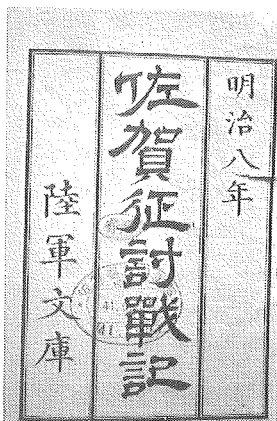 明治八年
佐賀征討戰記
陸軍文庫